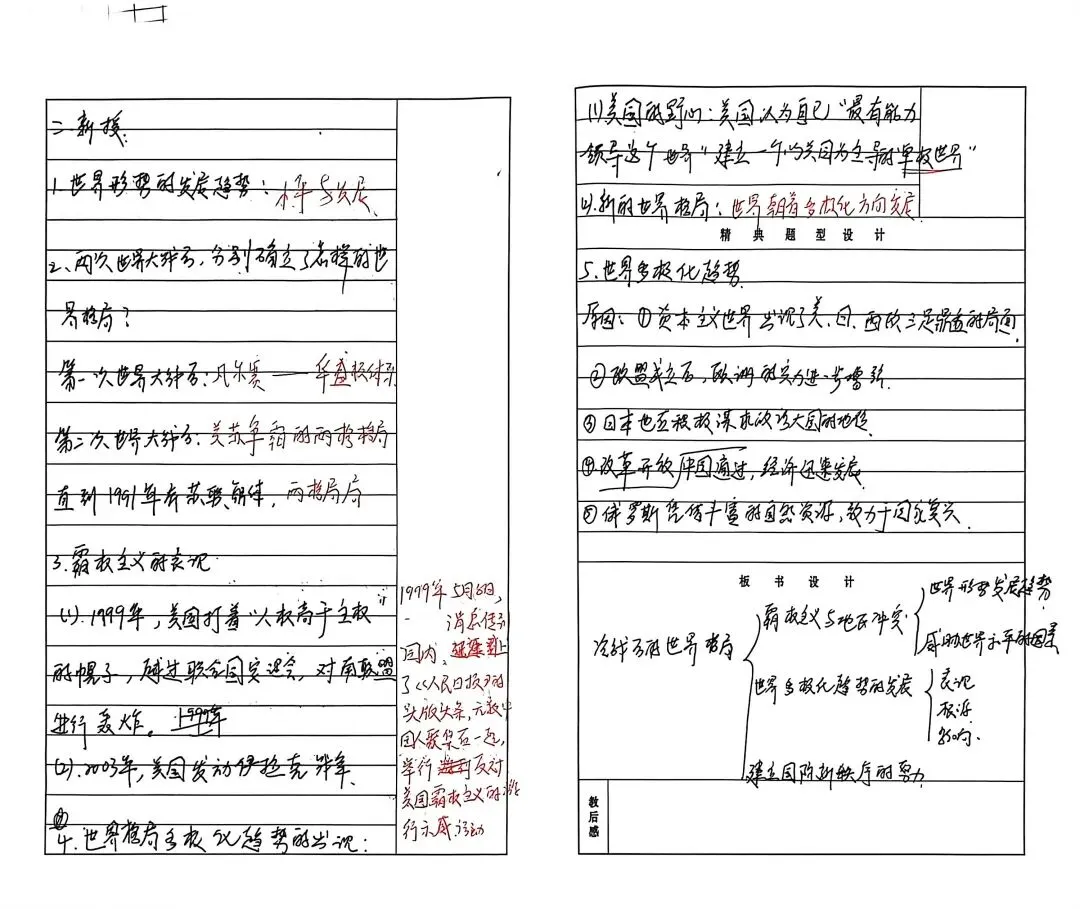 二 新授:
1. 世界形势的发展趋势: 和平与发展
2、两次世界大战后, 分别确立了怎样的世
界格局?
第一次世界大战后: 凡尔赛——华盛顿体系
第二次世界大战后: 美苏争霸的两极格局
直到1991年有苏联解体, 两格局
3. 霸权主义的表现
(1). 1999年, 美国打着"人权高于主权"
的幌子, 越过联合国安理会, 对南联盟
进行轰炸。1999年
(2). 2003年, 美国发动伊拉克战争.
4. 世界格局多极化趋势的出现:
1999年5月8日,
消息传到
国内,
了《人民日报》的
头版头条, 无数中
国人聚集在一起,
举行 反对
美国霸权主义的游
行示威活动
(1) 美国的野心: 美国认为自己"最有能力
领导这个世界"建立一个以美国为主导的"单极世界"
(2) 新的世界格局: 世界朝着多极化方向发展
精典题型设计
5. 世界多极化趋势
原因: ①资本主义世界出现了美、日、西欧三足鼎立的局面.
②欧盟成立后, 欧洲的实力进一步增强.
③日本也在积极谋求政治大国的地位.
④改革开放 中国通过, 经济迅速发展
⑤俄罗斯凭借丰富的自然资源, 致力于国家复兴.
板书设计
冷战后的世界格局
霸权主义与地区冲突
世界形势发展趋势
威胁世界和平的因素
世界多极化趋势的发展
表现
根源
影响.
建立国际新秩序的努力
教后感